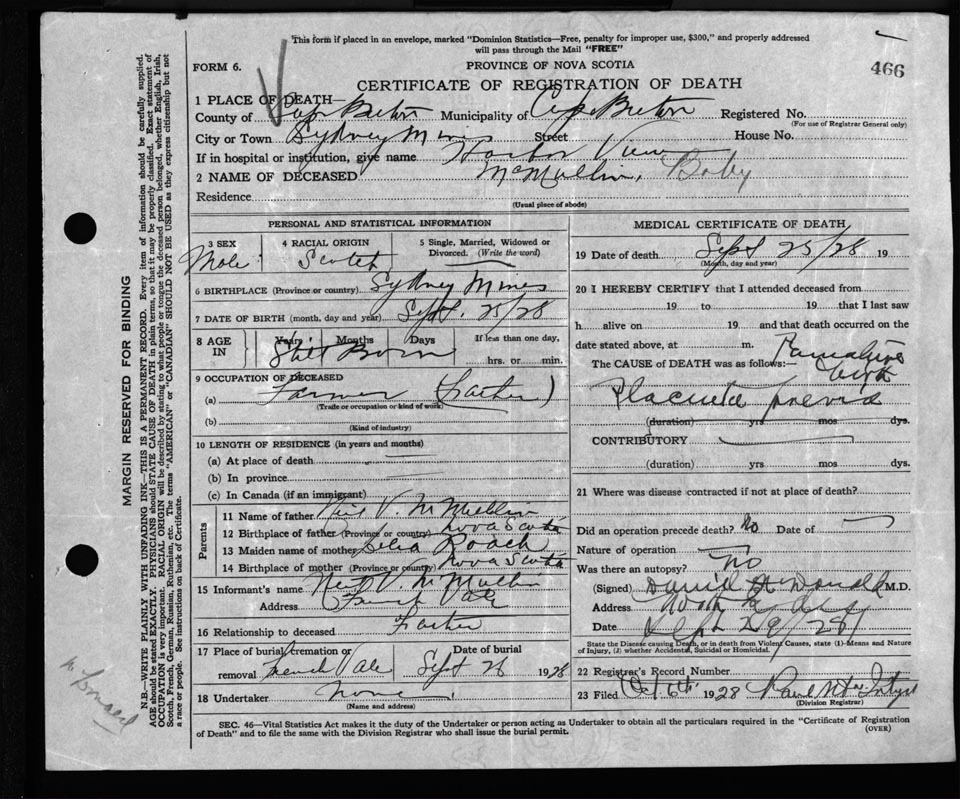 This form if placed in an envelope, marked "Dominion Statistics—Free, penalty for improper use, $300," and properly addressed
will pass through the Mail "FREE"
FORM 6.
PROVINCE OF NOVA SCOTIA
466
CERTIFICATE OF REGISTRATION OF DEATH
1 PLACE OF DEATH—
County of Cape Breton Municipality of Cape Breton Registered No.
(For use of Registrar General only)
City or Town Sydney Mines Street House No.
If in hospital or institution, give name Harbor View
2 NAME OF DECEASED McMullin, Baby
Residence
(Usual place of abode)
PERSONAL AND STATISTICAL INFORMATION
3 SEX Male
4 RACIAL ORIGIN Scotch
5 Single, Married, Widowed or Divorced. (Write the word)
6 BIRTHPLACE (Province or country) Sydney Mines
7 DATE OF BIRTH (month, day and year) Sept. 25/28
8 AGE IN Years Months Days If less than one day,
Still Born hrs. or min.
9 OCCUPATION OF DECEASED
(a) Farmer (Father)
(Trade or occupation or kind of work)
(b)
(Kind of industry)
10 LENGTH OF RESIDENCE (in years and months)
(a) At place of death
(b) In province
(c) In Canada (if an immigrant)
Parents
11 Name of father Neil V. McMullin
12 Birthplace of father (Province or country) Nova Scotia
13 Maiden name of mother Roach
14 Birthplace of mother (Province or country) Nova Scotia
15 Informant's name Neil V. McMullin
Address French Vale
16 Relationship to deceased Father
17 Place of burial, cremation or removal French Vale
Date of burial Sept 26 1928
18 Undertaker None
(Name and address)
MEDICAL CERTIFICATE OF DEATH
19 Date of death Sept 25/28 19
(Month, day and year)
20 I HEREBY CERTIFY that I attended deceased from
19 to 19 , that I last saw
h alive on 19 , and that death occurred on the
date stated above, at m.
The CAUSE OF DEATH was as follows:— Premature birth
Placenta previa
(duration) yrs mos dys.
CONTRIBUTORY
(duration) yrs mos dys.
21 Where was disease contracted if not at place of death?
Did an operation precede death? No Date of
Nature of operation
Was there an autopsy? No
(Signed) M.D.
Address
Date Sept 29/28
State the Disease causing Death, or in death from Violent Causes, state (1) Means and Nature
of Injury, (2) whether Accidental, Suicidal or Homicidal.
22 Registrar's Record Number
23 Filed Oct 6th 1928
(Division Registrar)
SEC. 46—Vital Statistics Act makes it the duty of the Undertaker or person acting as Undertaker to obtain all the particulars required in the "Certificate of Registration
of Death" and to file the same with the Division Registrar who shall issue the burial permit.
(OVER)
MARGIN RESERVED FOR BINDING
N.B.—WRITE PLAINLY WITH UNFADING INK—THIS IS A PERMANENT RECORD. Every item of information should be carefully supplied.
AGE should be stated EXACTLY. PHYSICIANS should STATE CAUSE OF DEATH in plain terms, so that it may be properly classified. Exact statement of
OCCUPATION is very important. RACIAL ORIGIN will be described by stating to what people or tongue the deceased person belonged, whether English, Irish,
Scotch, French, German, Russian, Ruthenian, etc. The terms "AMERICAN" or "CANADIAN" SHOULD NOT BE USED as they express citizenship but not
a race or people. See instructions on back of Certificate.